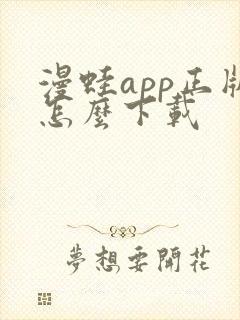 漫蛙app正版
怎麼下載
夢想要開花